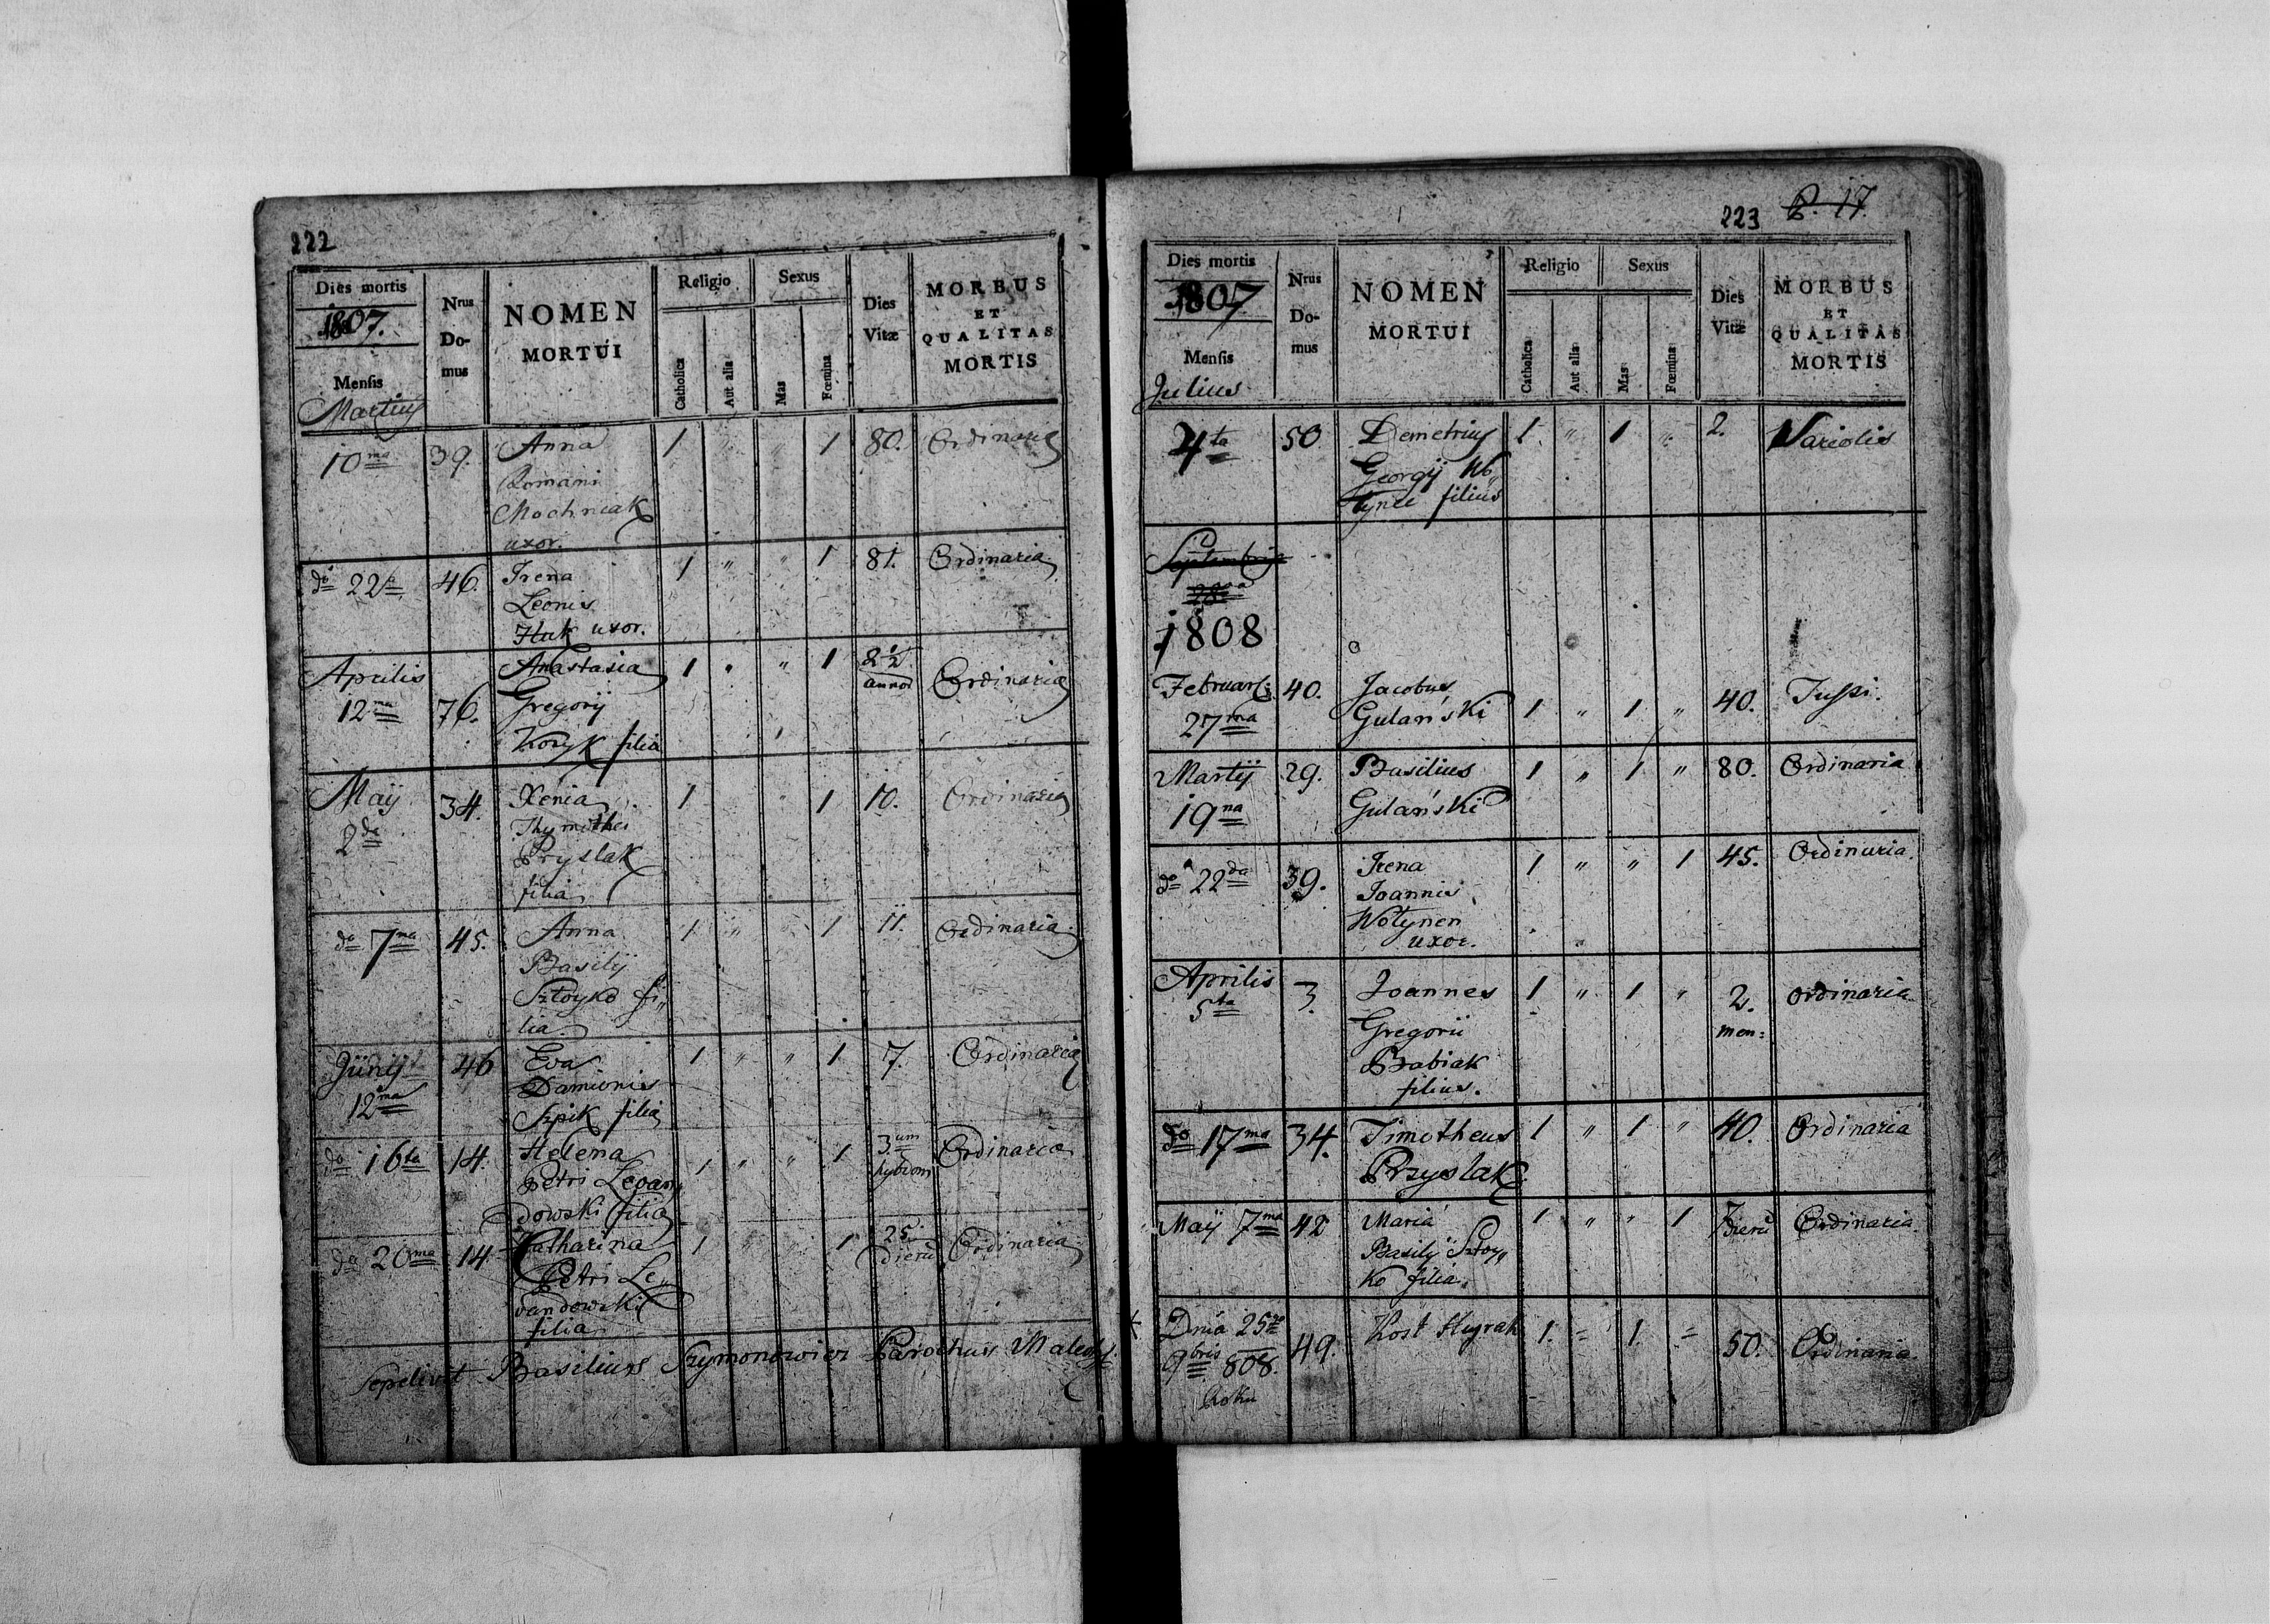 222
Dies mortis
1807.
Mensis
Martius
Nrus
Do-
mus
NOMEN
MORTUI
Religio
Catholica
Aut alia
Sexus
Mas
Fœmina
Dies
Vitæ
MORBUS
ET
QUALITAS
MORTIS
10ma 39. Anna 1 " " 1 80. Ordinaria
Romani
Mochnak
uxor.
do 22da 46. Irena 1 " " 1 81. Ordinaria
Leonis
Huk uxor.
Aprilis Anastasia 1 " " 1 2 1/2 Ordinaria
12ma 76. Gregorij annor
Kozyk filia
Maij 34. Xenia 1 " " 1 10. Ordinaria
2da Thymothei
Pryslak
filia
do 7ma 45. Anna 1 " " 1 11. Ordinaria
Basilij
Sztoyko fi„
lia
Junij 46 Eva 1 " " 1 7. Ordinaria
12ma Damionis
Szpik filia
do 16ta 14. Helena 1 " " 1 3um Ordinaria
Petri Levan„ hebdom
dowski filia
do 20ma 14 Catharina 1 " " 1 25 Ordinaria
Petri Le„ dierũ
vandowski
filia
Sepelivit Basilius Szymonowicz Parochus
223 P. 17.
Dies mortis
1807
Mensis
Julius
Nrus
Do-
mus
NOMEN
MORTUI
Religio
Catholica
Aut alia
Sexus
Mas
Fœmina
Dies
Vitæ
MORBUS
ET
QUALITAS
MORTIS
4ta 50. Demetrius 1 " 1 " 2. Variolis
Georgij Wo„
tynec filius
Septembris
28va
1808
Februar: 40. Jacobus
27ma Gulański 1 " 1 " 40. Tussi.
Martij 29. Basilius 1 " 1 " 80. Ordinaria
19na Gulański
do 22da 39. Irena 1 " " 1 45. Ordinaria.
Joannis
Wołynen
uxor.
Aprilis 3. Joannes 1 " 1 " 2. ordinaria
5ta Gregorii men:
Babiak
filius.
do 17ma 34. Timotheus 1 " 1 " 40. Ordinaria
Przyslak
Maij 7ma 42 Maria 1 " " 1 7 dierũ Ordinaria.
Basilij Sztoy„
ko filia.
Dnia 25go 49. Kost 1. = 1 = 50. Ordinaria.
9bris 808.
Roku